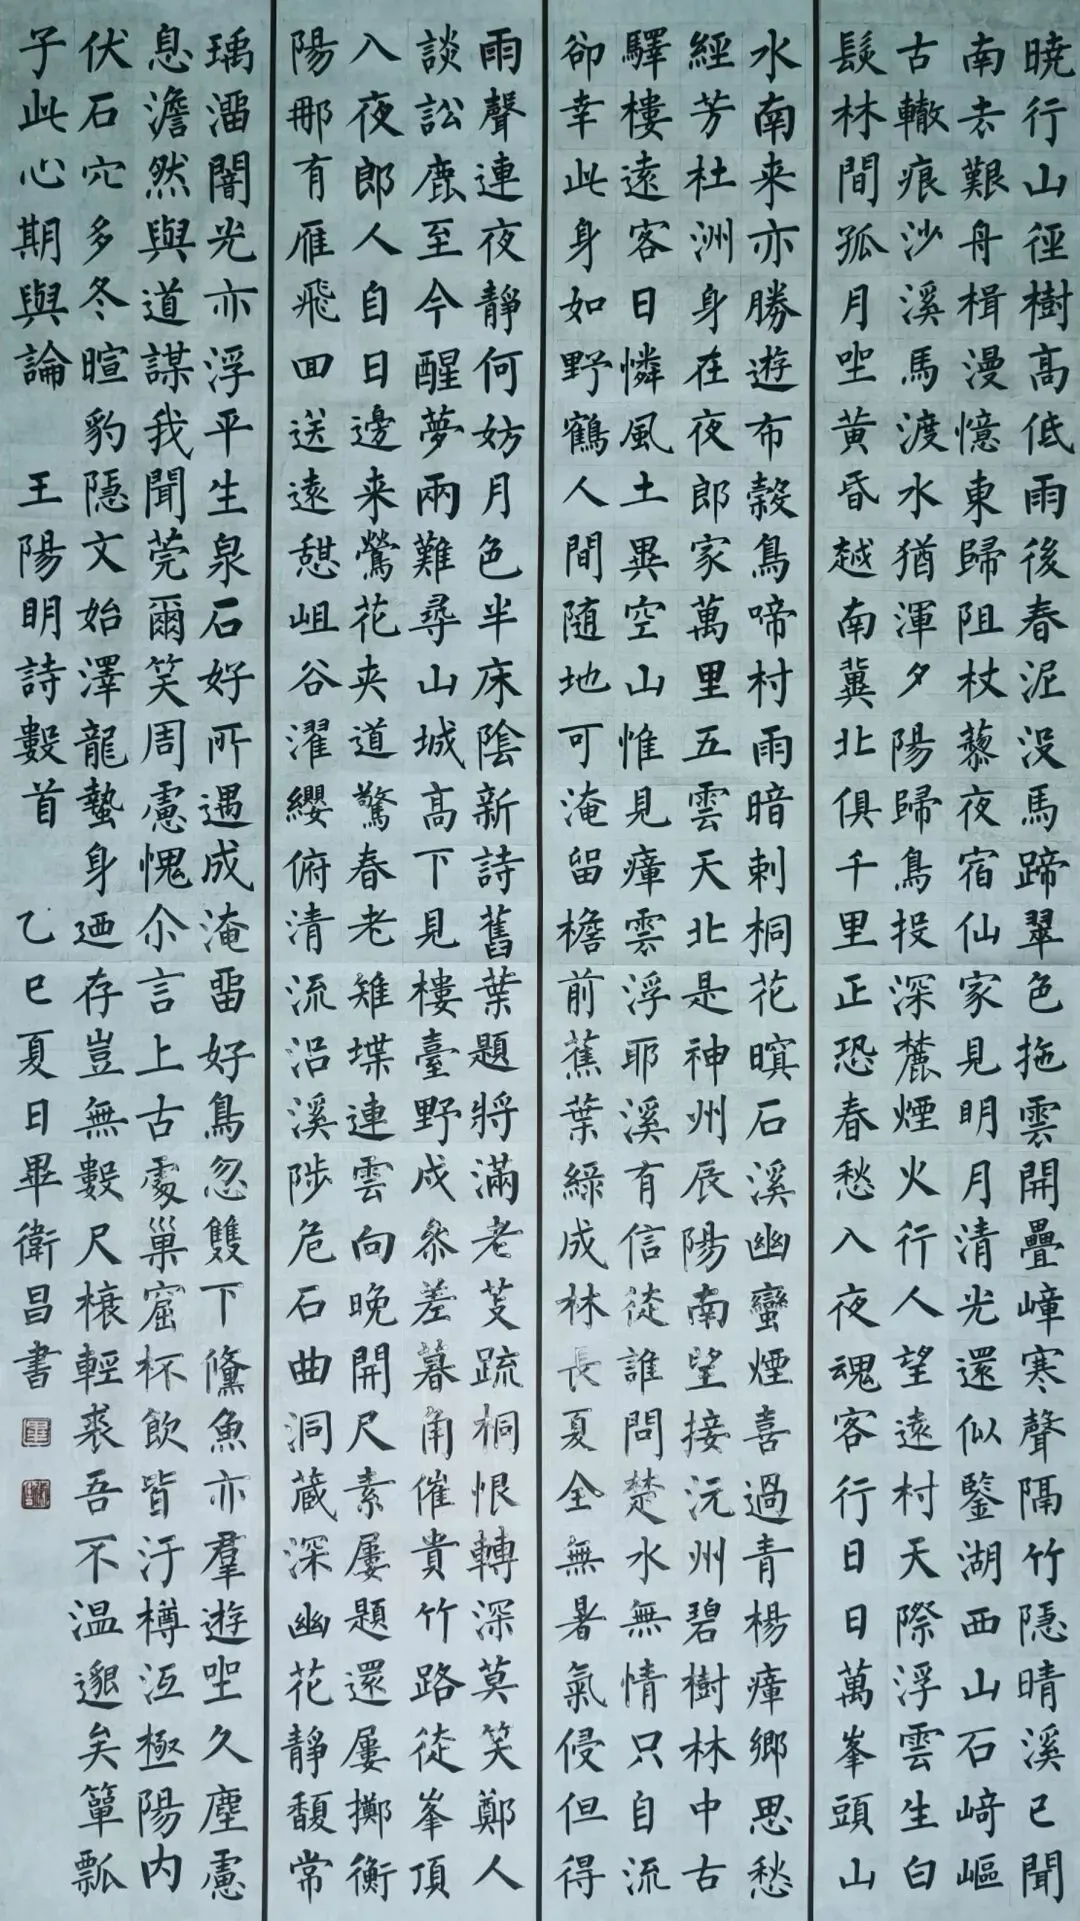 曉行山徑樹高低雨後春泥没馬蹄翠色拖雲開疊嶂寒聲隔竹隱晴溪已聞
南去艱舟楫漫憶東歸阻杖藜夜宿仙家見明月清光還似鑒湖西山石崎嶇
古轍痕沙溪馬渡水猶渾夕陽歸鳥投深麓煙火行人望遠村天際浮雲生白
髮林間孤月坐黃昏越南冀北俱千里正恐春愁入夜魂客行日日萬峯頭山
水南来亦勝遊布穀鳥啼村雨暗刺桐花暝石溪幽蠻煙喜過青楊瘴鄉思愁
經芳杜洲身在夜郎家萬里五雲天北是神州辰陽南望接沅州碧樹林中古
驛樓遠客日憐風土異空山惟見瘴雲浮耶溪有信從誰問楚水無情只自流
卻幸此身如野鶴人間随地可淹留檐前蕉葉緑成林長夏全無暑氣侵但得
雨聲連夜靜何妨月色半床陰新詩舊葉題將滿老芰疏桐恨轉深莫笑鄭人
談訟鹿至今醒夢兩難尋山城高下見樓臺野戍參差暮角催貴竹路從峯頂
入夜郎人自日邊来鶯花夾道驚春老雉堞連雲向晚開尺素屢題還屢擲衡
陽那有雁飛回送遠憩岨谷濯纓俯清流沿溪陟危石曲洞藏深幽花靜馥常
瑀溜闇光亦浮平生泉石好所遇成淹留好鳥忽雙下鯈魚亦羣遊坐久塵慮
息澹然與道謀我聞莞爾笑周慮愧尒言上古處巢窟杯飲皆汙樽沍極陽内
伏石穴多冬暄豹隱文始澤龍蟄身迺存豈無數尺榱輕裘吾不温邈矣簞瓢
子此心期與論 王陽明詩數首 乙巳夏日畢衛昌書